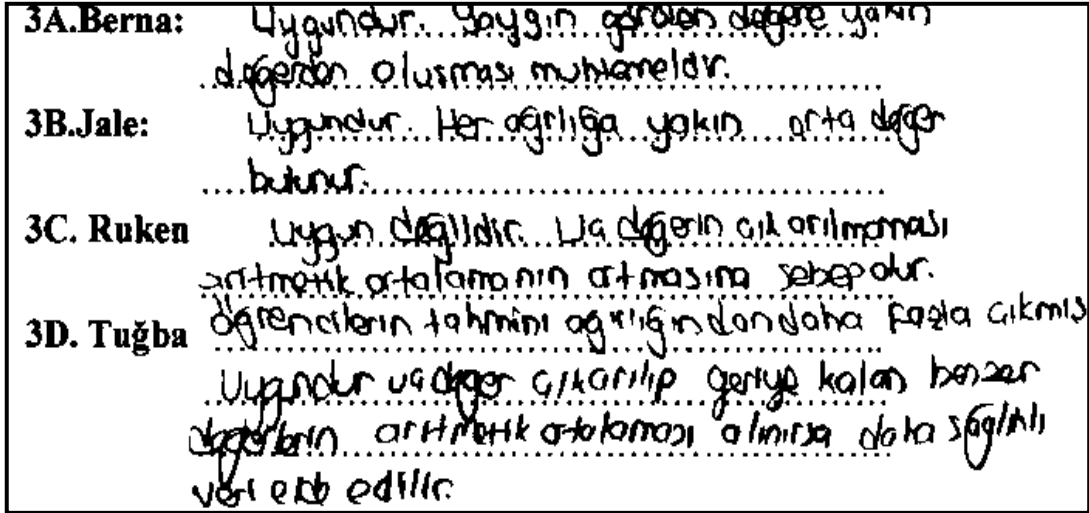 3A.Berna: Uygundur. Yaygın görülen değere yakın
değerden oluşması muhtemeldir.
3B.Jale: Uygundur. Her ağırlığa yakın orta değer
bulunur.
3C. Ruken Uygun değildir. Uç değerin çıkarılmaması
aritmetik ortalamanın artmasına sebep olur.
3D. Tuğba öğrencilerin tahmini ağırlığından daha fazla çıkmış
Uygundur uç değer çıkarılıp geriye kalan benzer
değerlerin aritmetik ortalaması alınırsa daha sağlıklı
veri elde edilir.